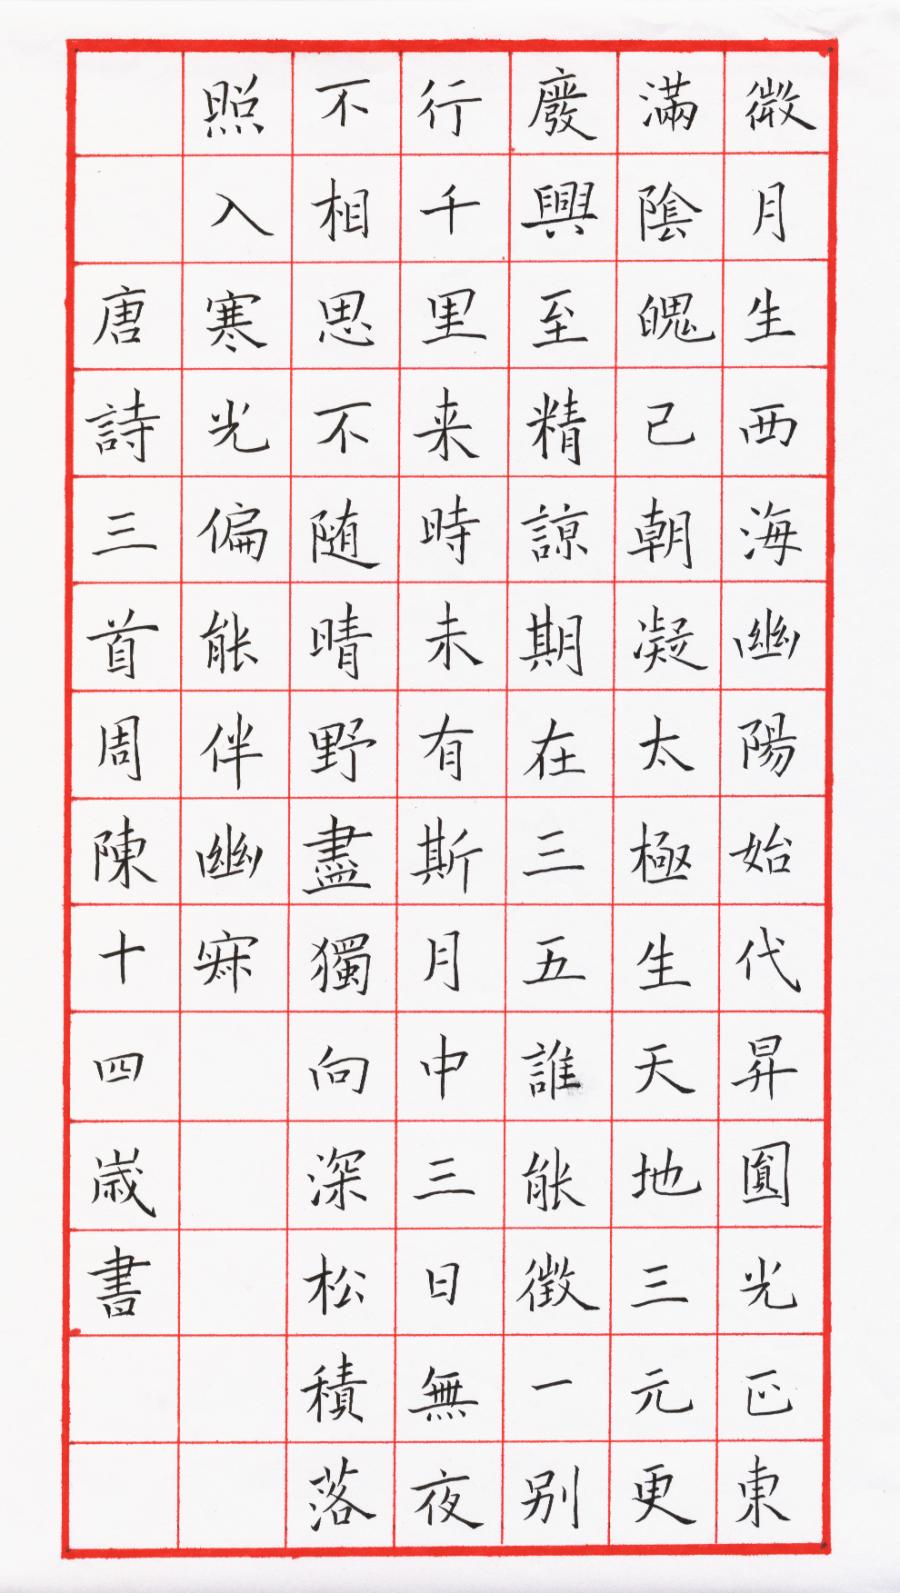 微月生西海幽陽始代昇圓光正東
滿陰魄已朝凝太極生天地三元更
廢興至精諒期在三五誰能徵一別
行千里来時未有斯月中三日無夜
不相思不随晴野盡獨向深松積落
照入寒光偏能伴幽寂
唐詩三首周陳十四歲書